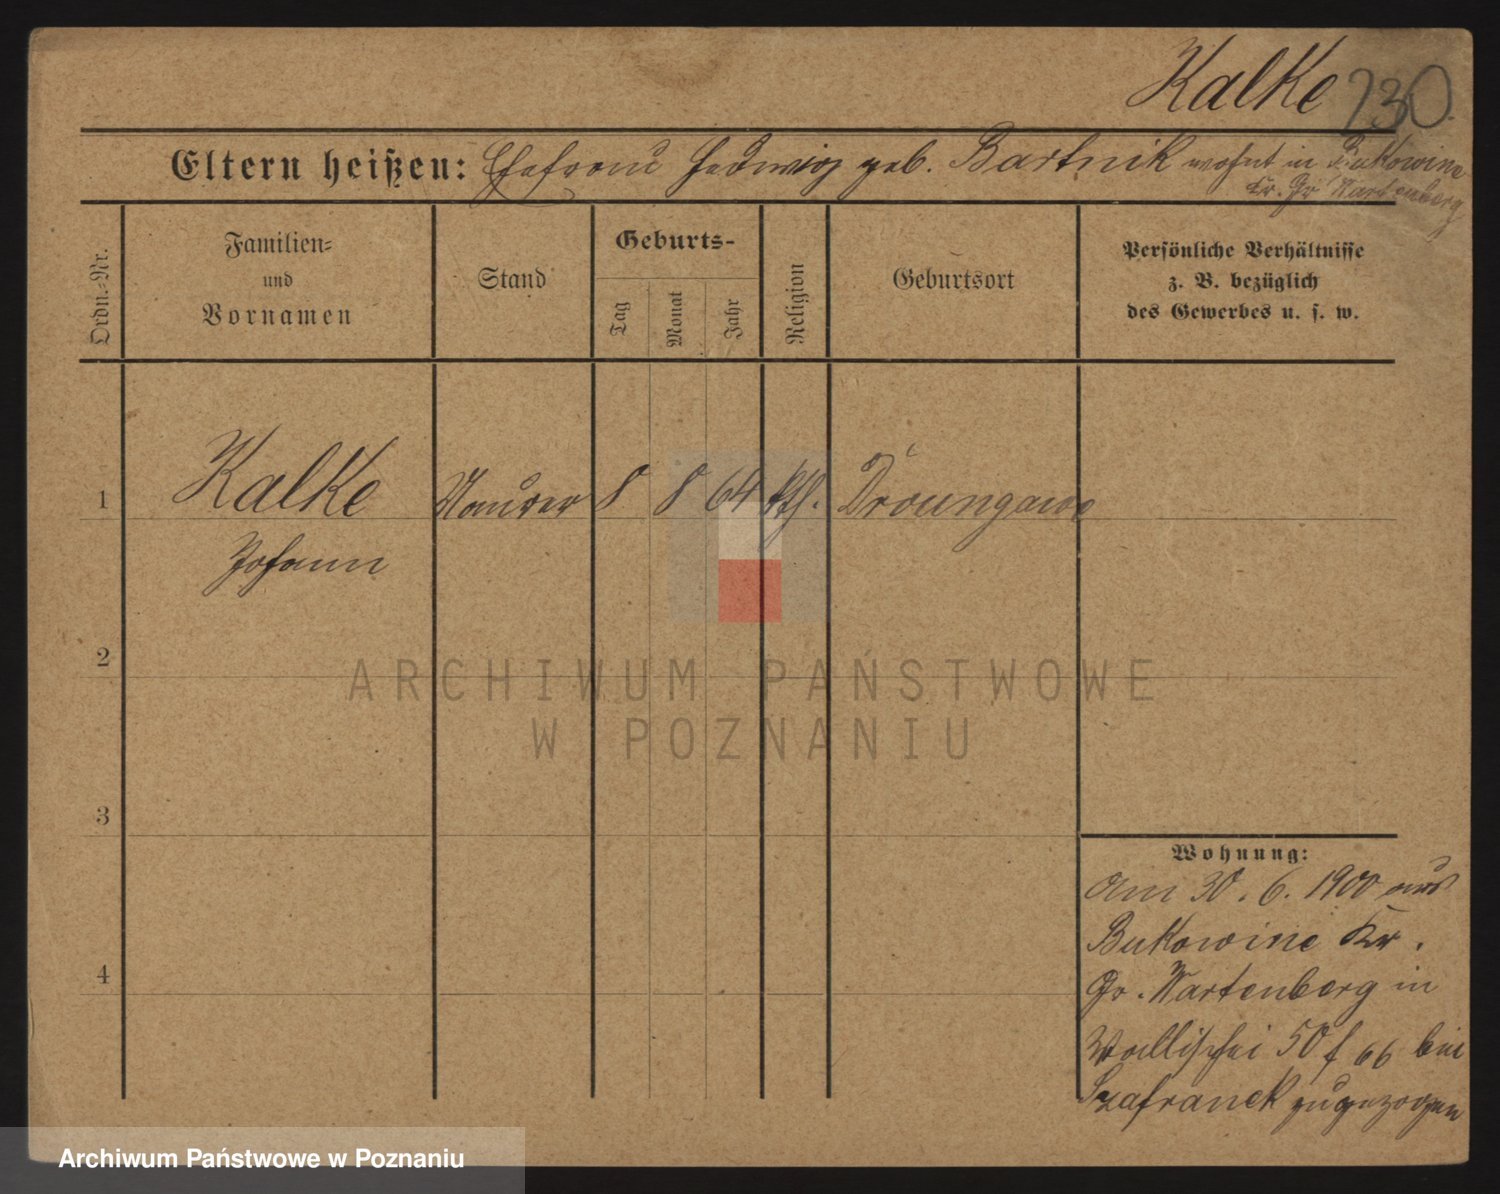 Kalke 230.
Eltern heißen: Ehefrau Hedwig geb. Bartnik wohnt in Bukowine
Kr. Gr Wartenberg
Ordn.-Nr.
Familien-
und
Vornamen
Stand
Geburts-
Tag
Monat
Jahr
Religion
Geburtsort
Persönliche Verhältnisse
z. B. bezüglich
des Gewerbes u. s. w.
1 Kalke Maurer 8 8 64 kth.
Johann
2
3
4
Wohnung:
Am 30. 6. 1900 aus
Bukowine Kr.
Gr. Wartenberg in
Wallischei 50/66 bei
Szafranek zugezogen
ARCHIWUM PAŃSTWOWE
W POZNANIU
Archiwum Państwowe w Poznaniu